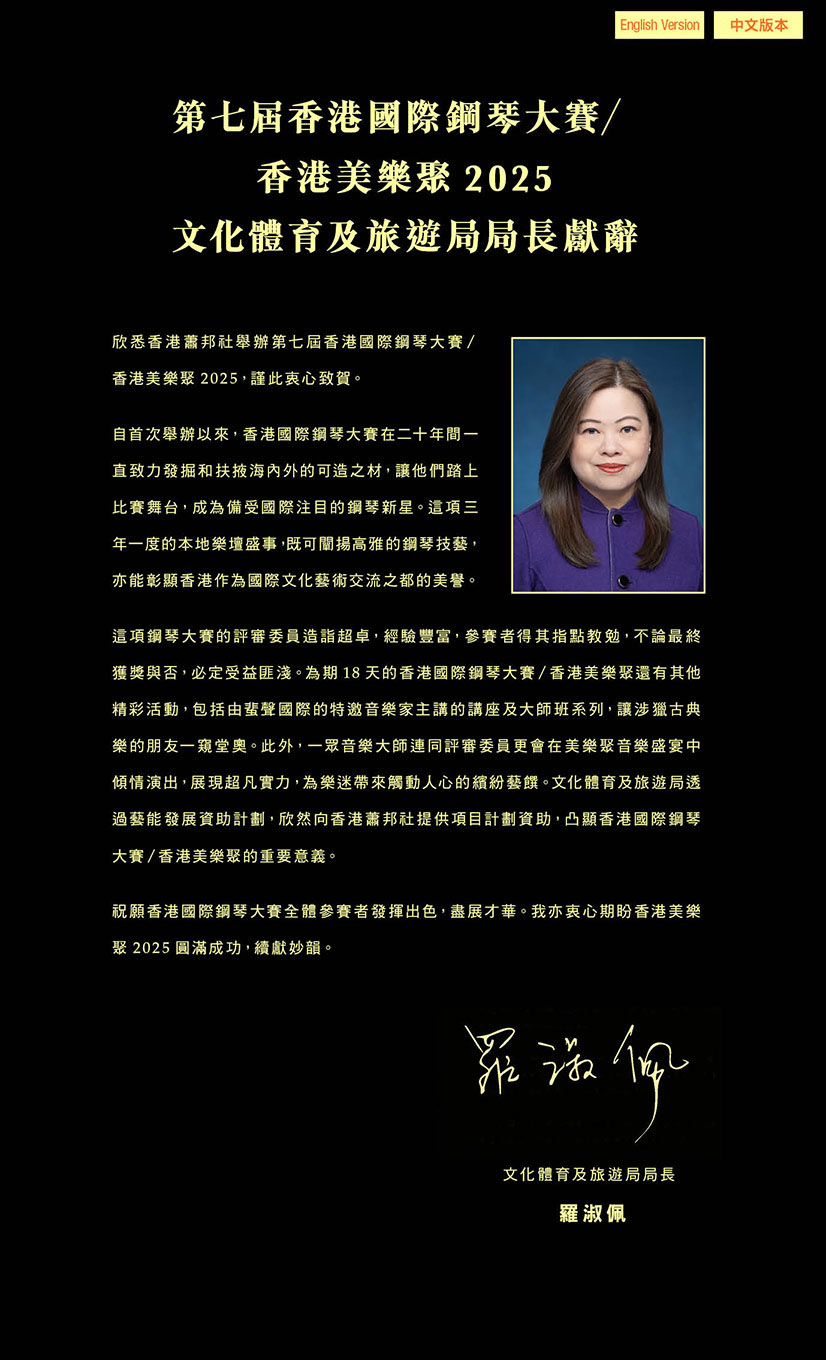 English Version 中文版本
第七屆香港國際鋼琴大賽/
香港美樂聚 2025
文化體育及旅遊局局長獻辭
欣悉香港蕭邦社舉辦第七屆香港國際鋼琴大賽/
香港美樂聚 2025，謹此衷心致賀。
自首次舉辦以來，香港國際鋼琴大賽在二十年間一
直致力發掘和扶掖海內外的可造之材，讓他們踏上
比賽舞台，成為備受國際注目的鋼琴新星。這項三
年一度的本地樂壇盛事，既可闡揚高雅的鋼琴技藝，
亦能彰顯香港作為國際文化藝術交流之都的美譽。
這項鋼琴大賽的評審委員造詣超卓，經驗豐富，參賽者得其指點教勉，不論最終
獲獎與否，必定受益匪淺。為期 18 天的香港國際鋼琴大賽/香港美樂聚還有其他
精彩活動，包括由蜚聲國際的特邀音樂家主講的講座及大師班系列，讓涉獵古典
樂的朋友一窺堂奧。此外，一眾音樂大師連同評審委員更會在美樂聚音樂盛宴中
傾情演出，展現超凡實力，為樂迷帶來觸動人心的繽紛藝饌。文化體育及旅遊局透
過藝能發展資助計劃，欣然向香港蕭邦社提供項目計劃資助，凸顯香港國際鋼琴
大賽/香港美樂聚的重要意義。
祝願香港國際鋼琴大賽全體參賽者發揮出色，盡展才華。我亦衷心期盼香港美樂
聚 2025 圓滿成功，續獻妙韻。
羅淑佩
文化體育及旅遊局局長
羅淑佩